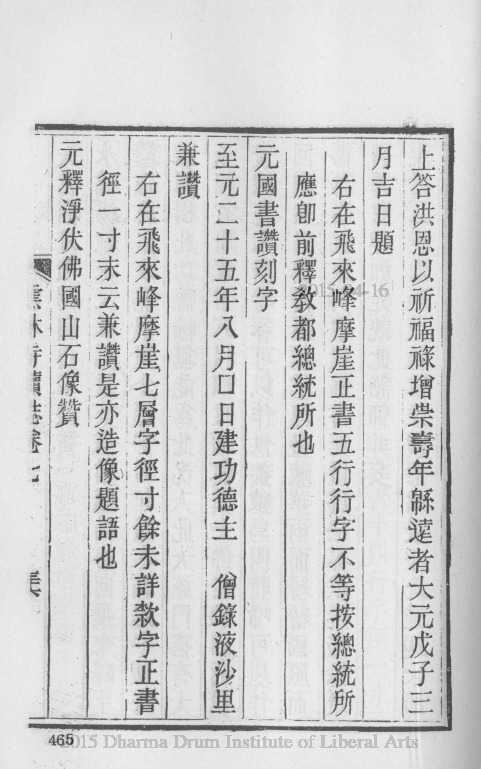 上答洪恩以祈福祿增崇壽年緜遠者大元戊子三
月吉日題
右在飛來峰摩崖正書五行行字不等按總統所
應卽前釋敎都總統所也
元國書讚刻字
至元二十五年八月口日建功德主 僧錄液沙里
兼讚
右在飛來峰摩崖七層字徑寸餘未詳欵字正書
徑一寸末云兼讚是亦造像題語也
元釋淨伏佛國山石像贊
林寺續誌卷七
465
2015 Dharma Drum Institute of Liberal Arts